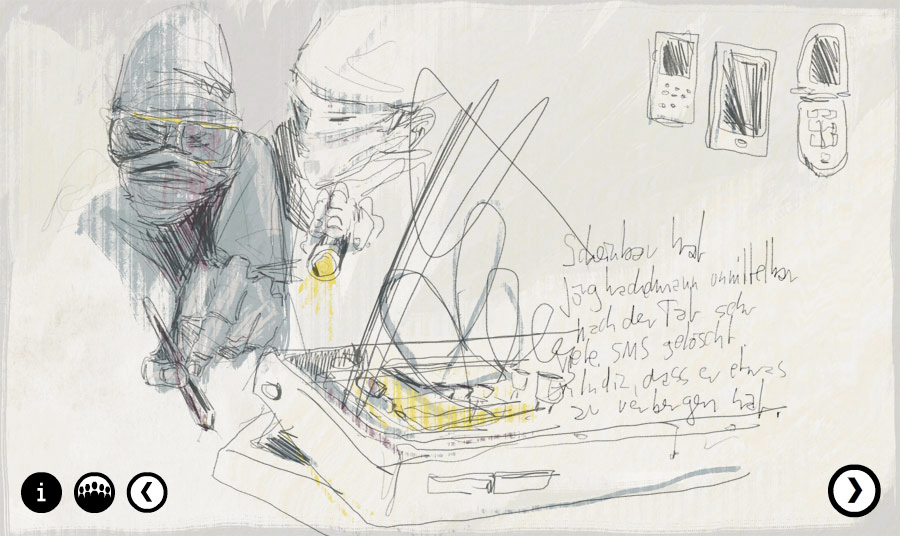 Scheinbar hat
Jörg unmittelbar
nach der Tat sehr
viele SMS gelöscht.
Ein Indiz, dass er etwas
zu verbergen hat.
i